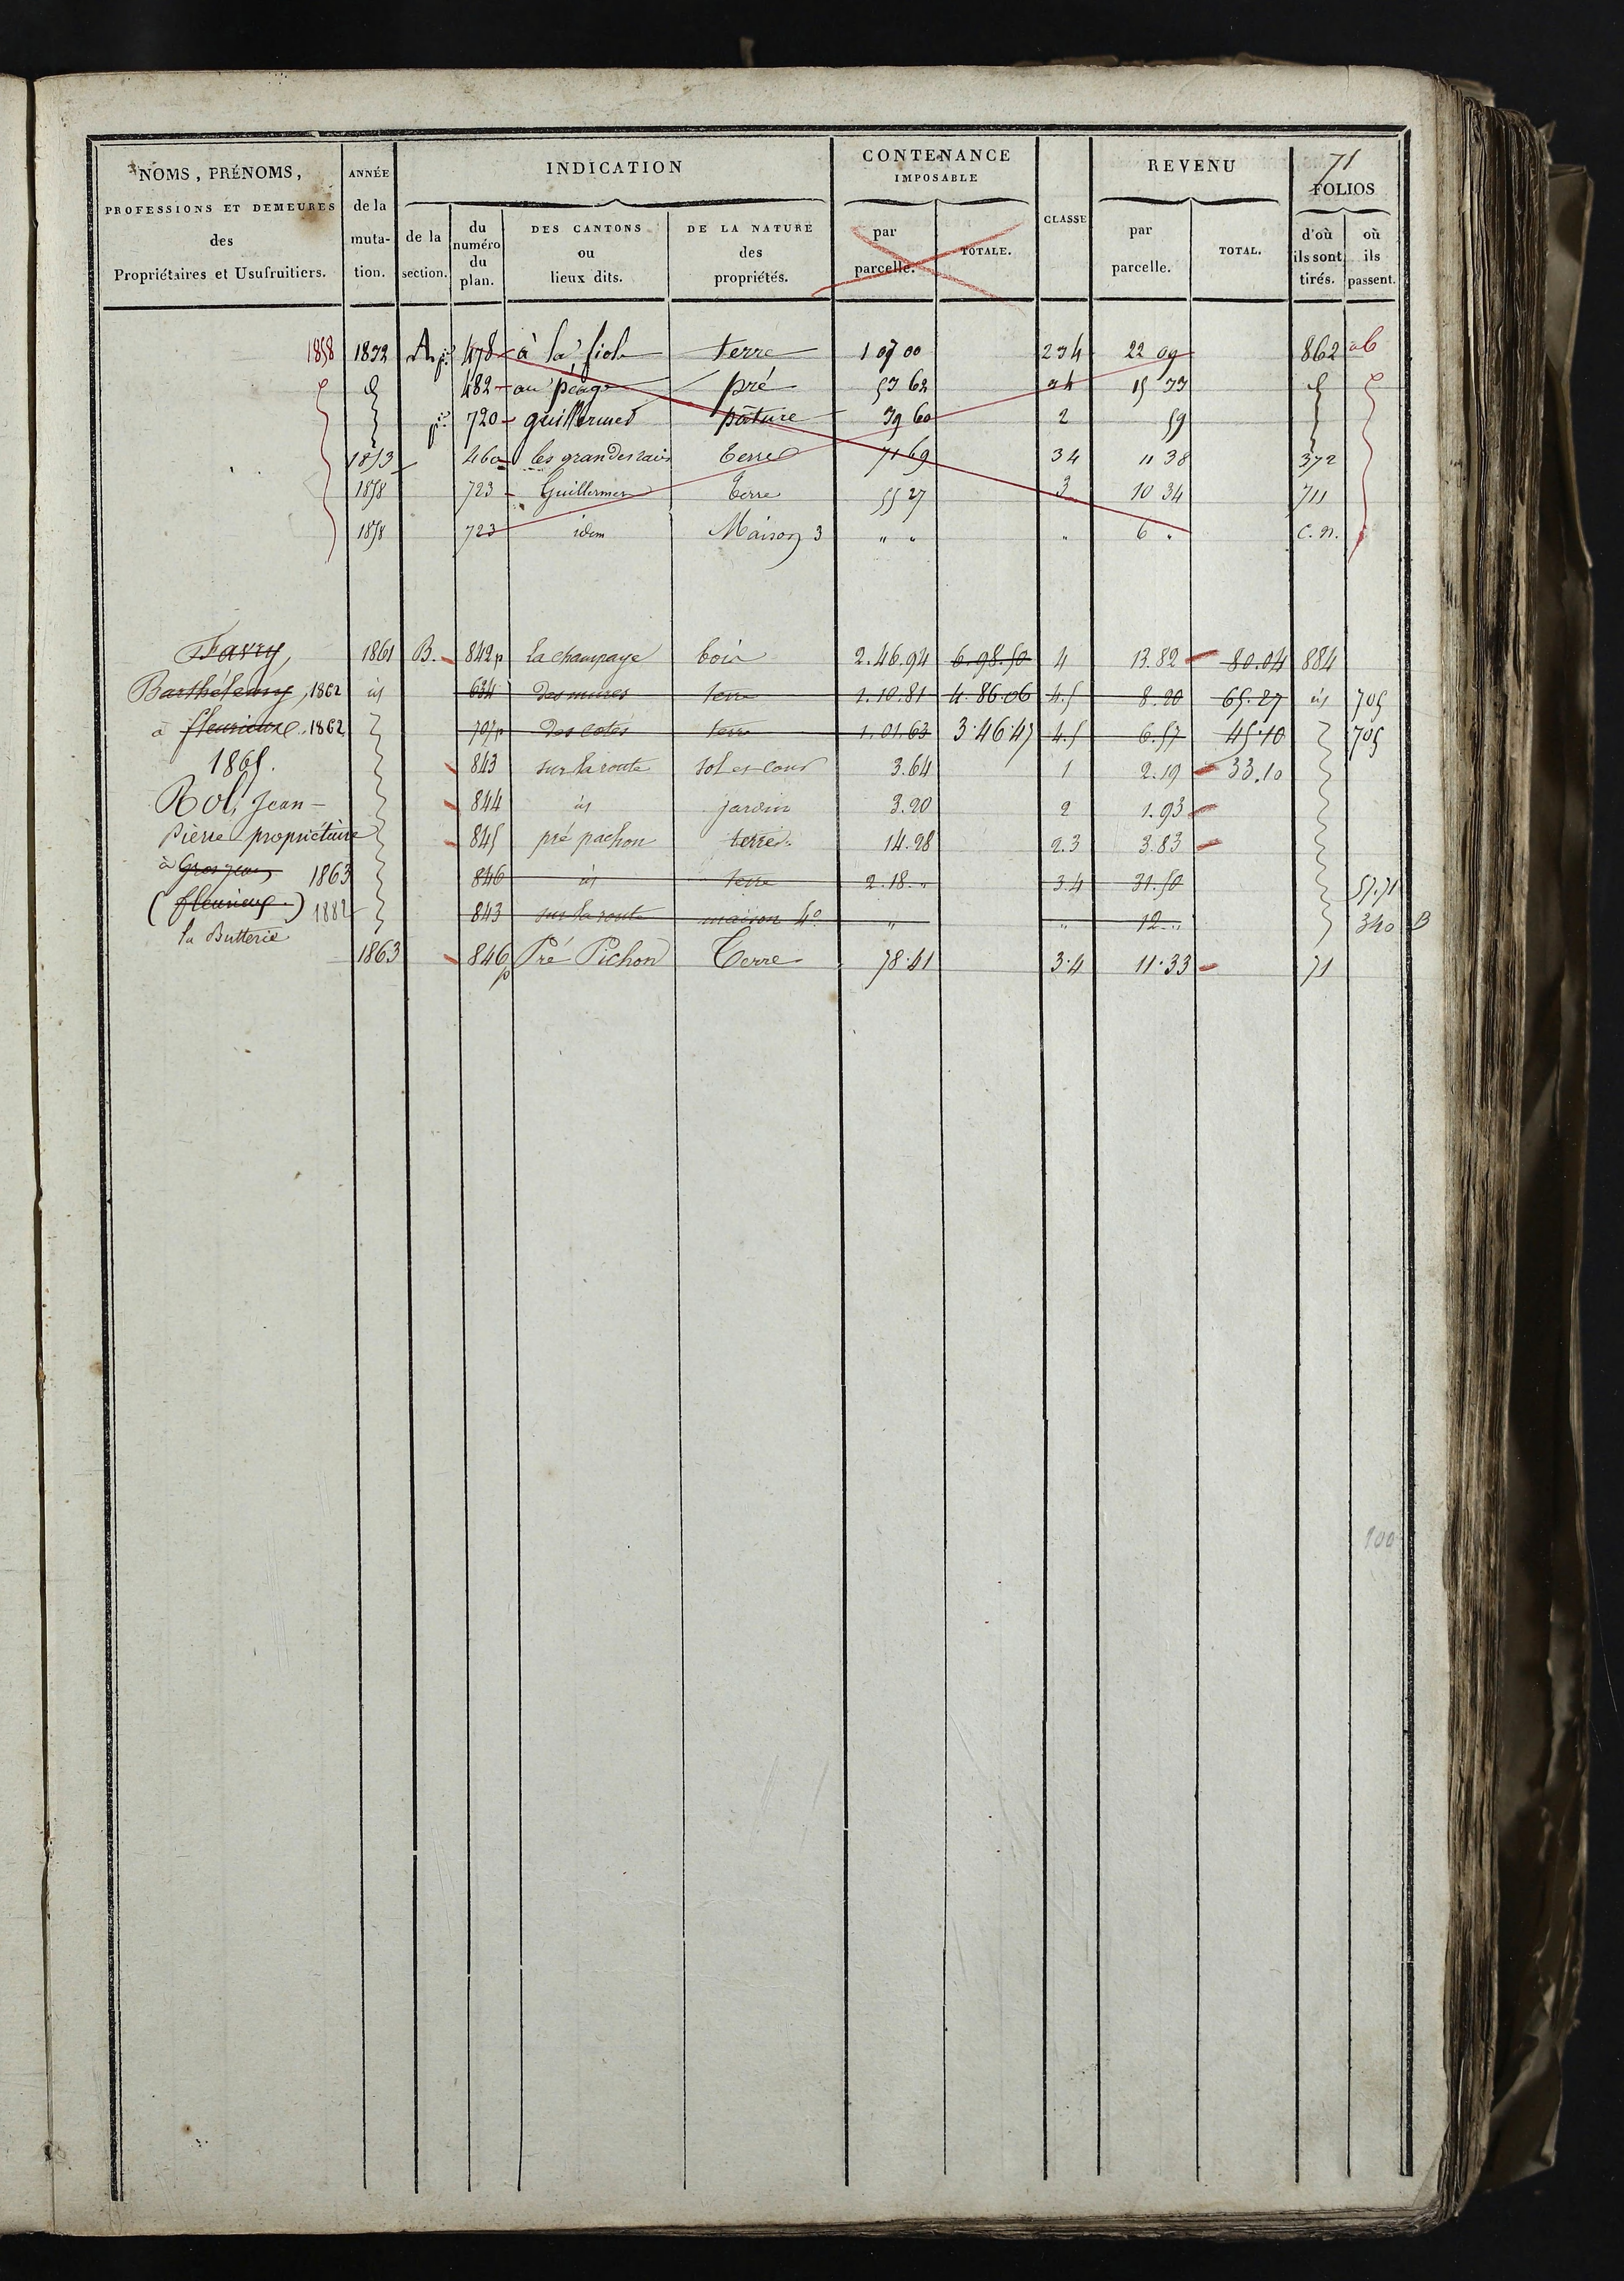 71
NOMS, PRÉNOMS, PROFESSIONS ET DEMEURES des Propriétaires et Usufruitiers. | ANNÉE de la muta-tion. | INDICATION | CONTENANCE IMPOSABLE | CLASSE | REVENU | FOLIOS
de la section. | du numéro du plan. | DES CANTONS ou lieux dits. | DE LA NATURE des propriétés. | par parcelle. | TOTALE. | par parcelle. | TOTAL. | d'où ils sont tirés. | où ils passent.
1858 | 1832 | A p.ie | 478 | à la fiole | terre | 1 07 00 | 234 | 22 09 | 862 | ab
d | 482 | au péage | pré | 53 62 | 24 | 15 73 | d
p.ie | 720 | guillermes | pâture | 39 60 | 2 | 59
1853 | 460 | les grandes raies | terre | 71 69 | 34 | 11 38 | 372
1858 | 723 | Guillermes | terre | 55 27 | 3 | 10 34 | 711
1858 | 723 | idem | Maison 3 | " " | " | 6 " | C. n.
Favry, | 1861 | B. | 842p | la champaye | bois | 2.46.94 | 6.98.50 | 4 | 13.82 | 80.04 | 884
Barthélemy, 1862 | id | 634 | des mures | terre | 1.10.81 | 4.86.06 | 4.5 | 8.20 | 65.27 | id | 705
à fleurieux. 1862 | 707p | des cotes | terre | 1.01.63 | 3.46.45 | 4.5 | 6.57 | 45.10 | 705
1865. | 843 | sur la route | sol et cour | 3.64 | 1 | 2.19 | 33.10
Rol, Jean- | 844 | id | jardin | 3.20 | 2 | 1.93
Pierre propriétaire | 845 | pré pachon | terre | 14.28 | 2.3 | 3.83
à Grosjean 1863 | 846 | id | terre | 2.18. " | 3.4 | 31.50 | 57.71
(fleurieux) 1882 | 843 | sur la route | maison 4e | " | " | 12 " | 340 B
la Butterie
1863 | 846p | Pré Pichon | Terre | 78.41 | 3.4 | 11.33 | 71
100